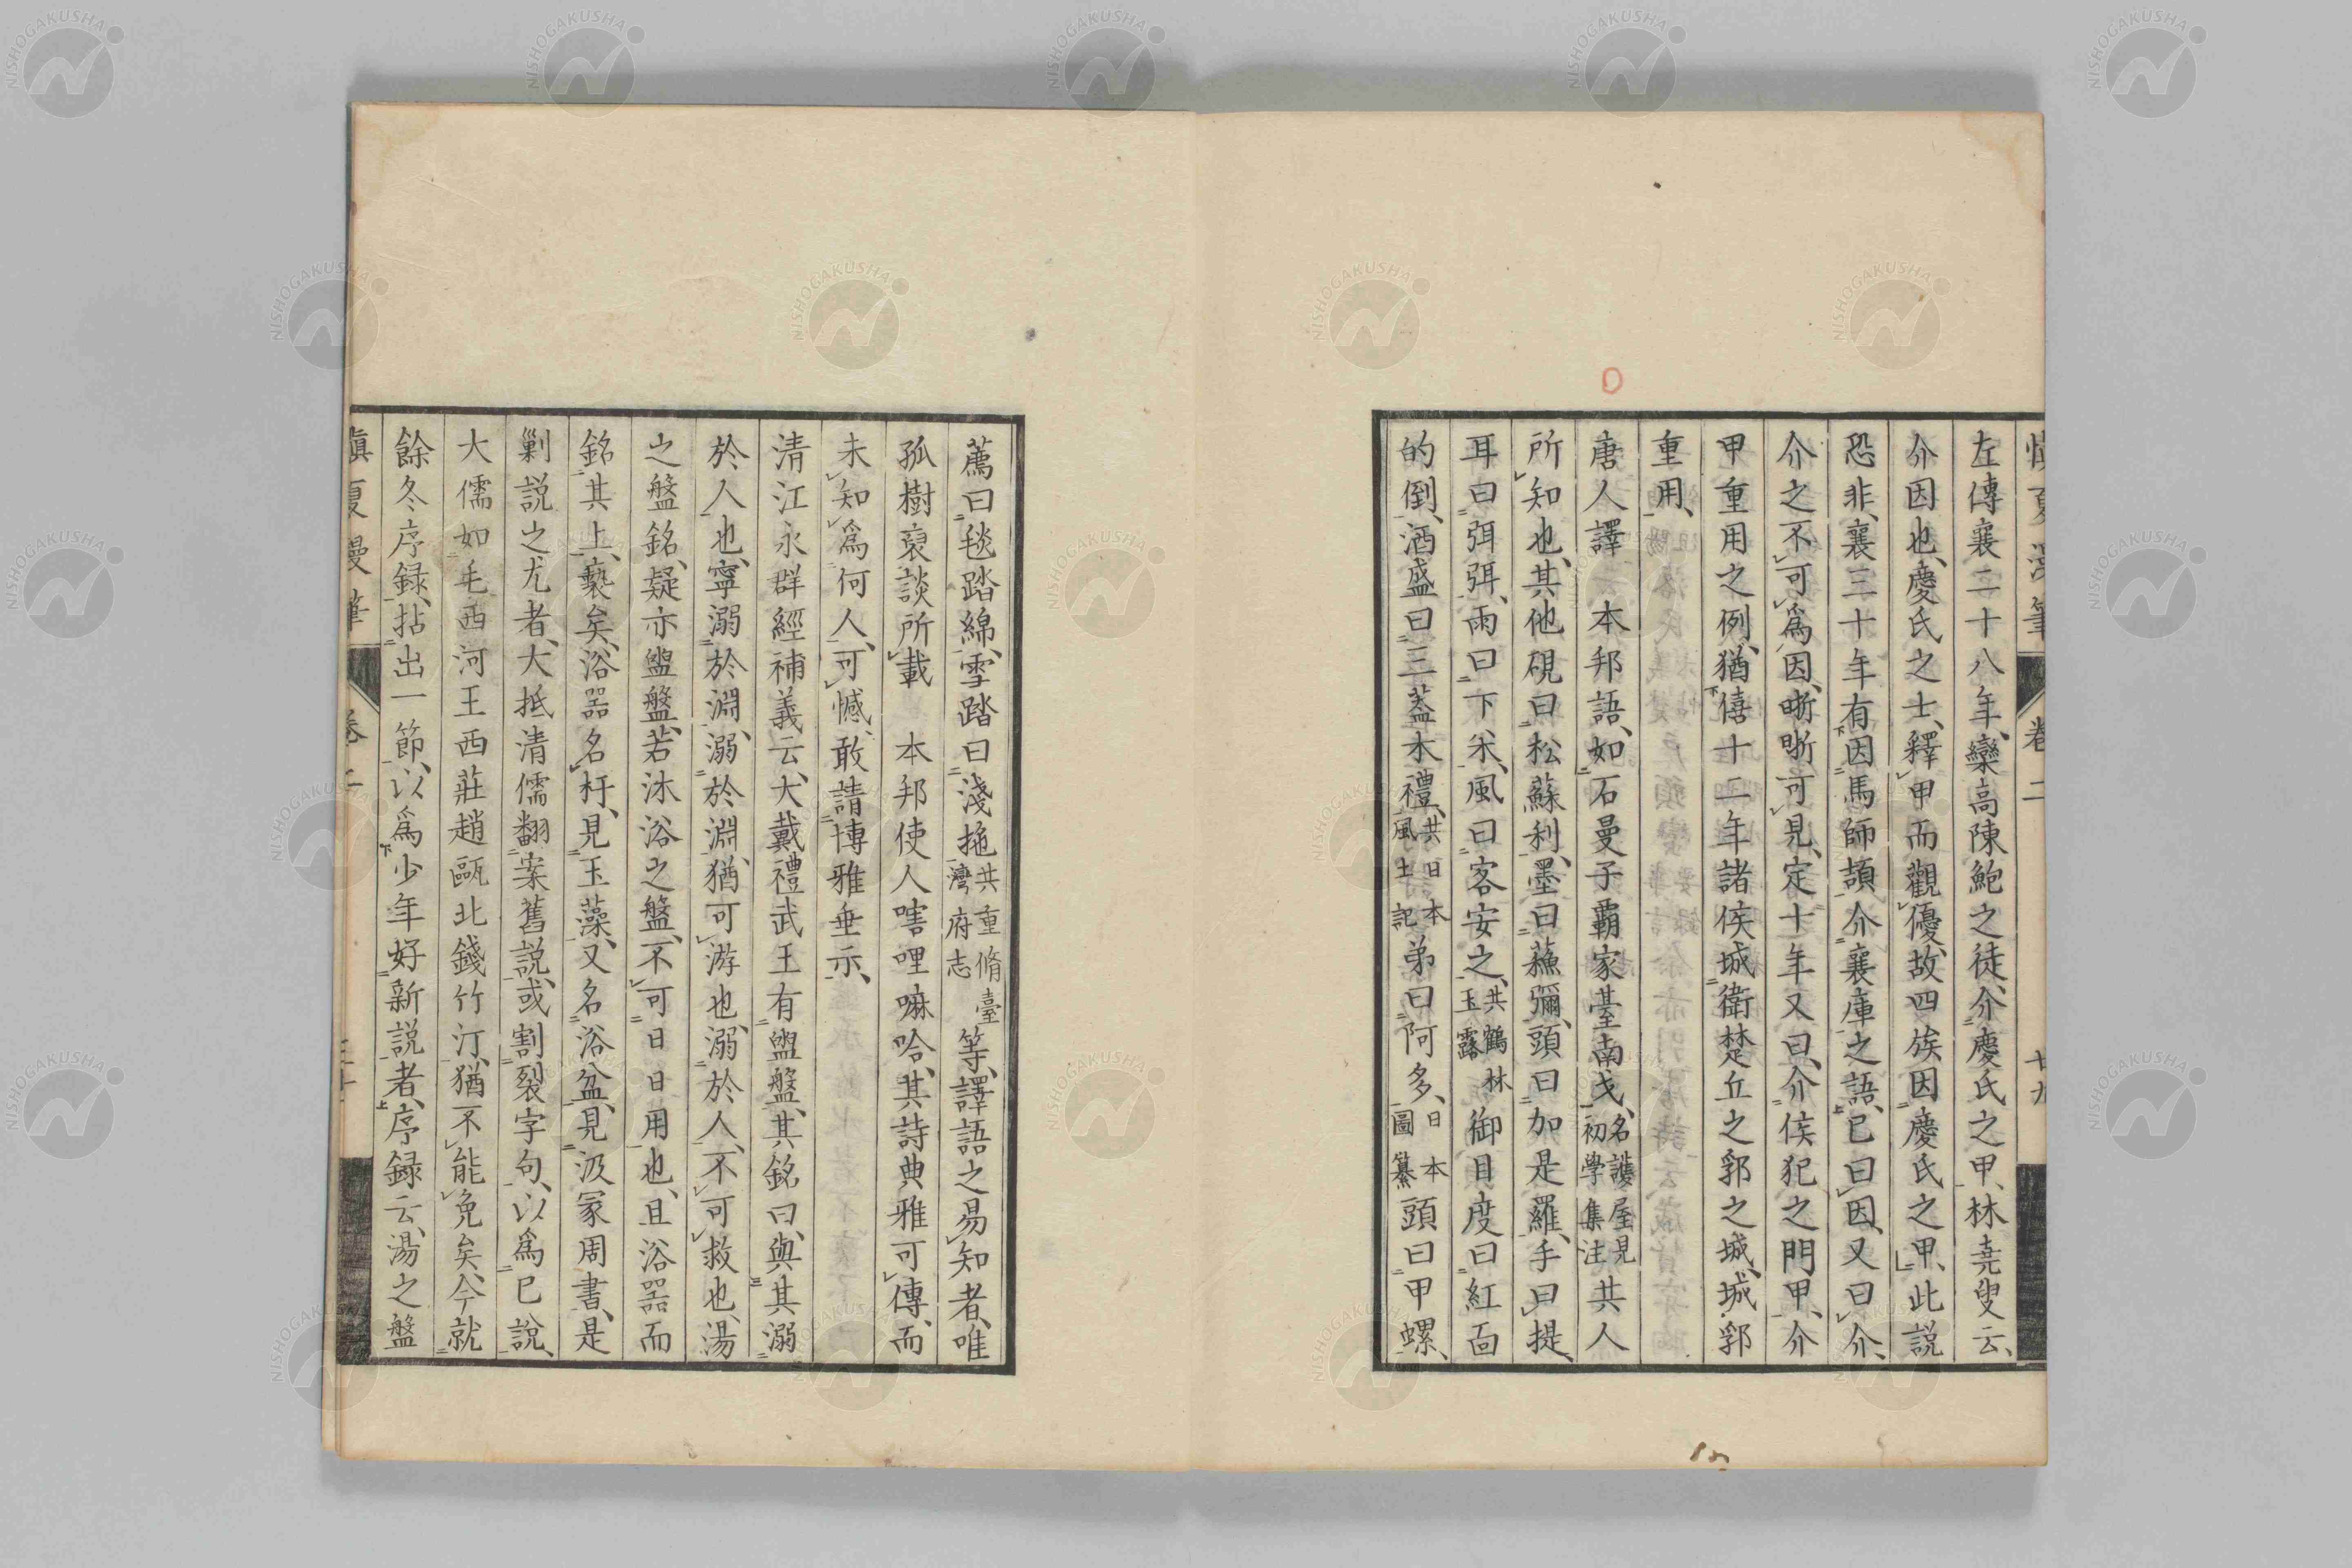 慎夏漫筆 卷二 廿九
左傳襄二十八年、欒高陳鮑之徒、介慶氏之甲、林堯叟云、
介因也、慶氏之士、釋甲而觀優、故四族因慶氏之甲、此說
恐非、襄三十年有因馬師頡介襄庫之語、已曰因、又曰介、
介之不可爲因、晣晣可見、定十年又曰、介侯犯之門甲、介
甲重用之例、猶僖十二年諸侯城衛楚丘之郛之城、城郛
重用、
唐人譯 本邦語、如石曼子霸家臺南戍、名護屋見初學集注 共人
所知也、其他硯曰松蘇利、墨曰蘓彌、頭曰加是羅、手曰提、
耳曰弭弭、雨曰下米、風曰客安之、共鶴林玉露 御目度曰紅面
的倒、酒盛曰三蓋木禮、共日本風土記 弟曰阿多、日本圖纂 頭曰甲螺、
薦曰毯踏綿、雪踏曰淺拖共重脩臺灣府志 等、譯語之易知者、唯
孤樹裒談所載 本邦使人嗐哩嘛哈、其詩典雅可傳、而
未知爲何人、可憾、敢請博雅垂示、
清江永群經補義云、大戴禮武王有盥盤、其銘曰、與其溺
於人也、寧溺於淵、溺於淵、猶可游也、溺於人、不可救也、湯
之盤銘、疑亦盥盤、若沐浴之盤、不可日日用也、且浴器而
銘其上、褻矣、浴器名杅、見玉藻、又名浴盆、見汲冢周書、是
剿説之尤者、大抵清儒翻案舊説、或割裂字句、以爲已說、
大儒如毛西河王西莊趙甌北錢竹汀、猶不能免矣、今就
餘冬序録、拈出一節、以爲少年好新説者、序録云、湯之盤
慎夏漫筆 卷二 三十